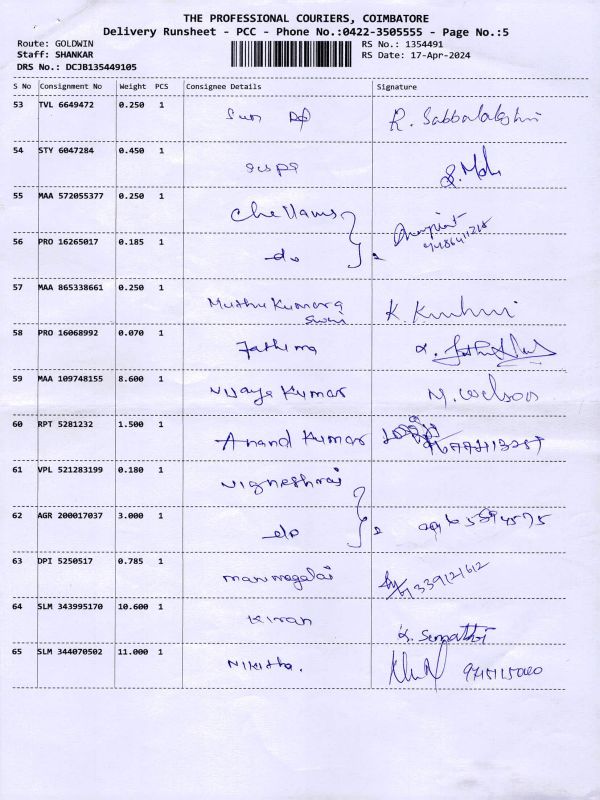 THE PROFESSIONAL COURIERS, COIMBATORE
Delivery Runsheet - PCC - Phone No.:0422-3505555 - Page No.:5
Route: GOLDWIN RS No.: 1354491
Staff: SHANKAR RS Date: 17-Apr-2024
DRS No.: DCJB135449105
S No Consignment No Weight PCS Consignee Details Signature
53 TVL 6649472 0.250 1 Sun R. Sabbalakshmi
54 STY 6047284 0.450 1
55 MAA 572055377 0.250 1 Chellams
56 PRO 16265017 0.185 1 do 2
57 MAA 865338661 0.250 1 Muthu Kumara
Swami K.
58 PRO 16068992 0.070 1 Fathima
59 MAA 109748155 8.600 1 Vijaya Kumar M. Wilson
60 RPT 5281232 1.500 1 Anand Kumar
61 VPL 521283199 0.180 1 Vigneshraj
62 AGR 200017037 3.000 1 do 2
63 DPI 5250517 0.785 1
64 SLM 343995170 10.600 1 Kiran
65 SLM 344070502 11.000 1 Nikitha.